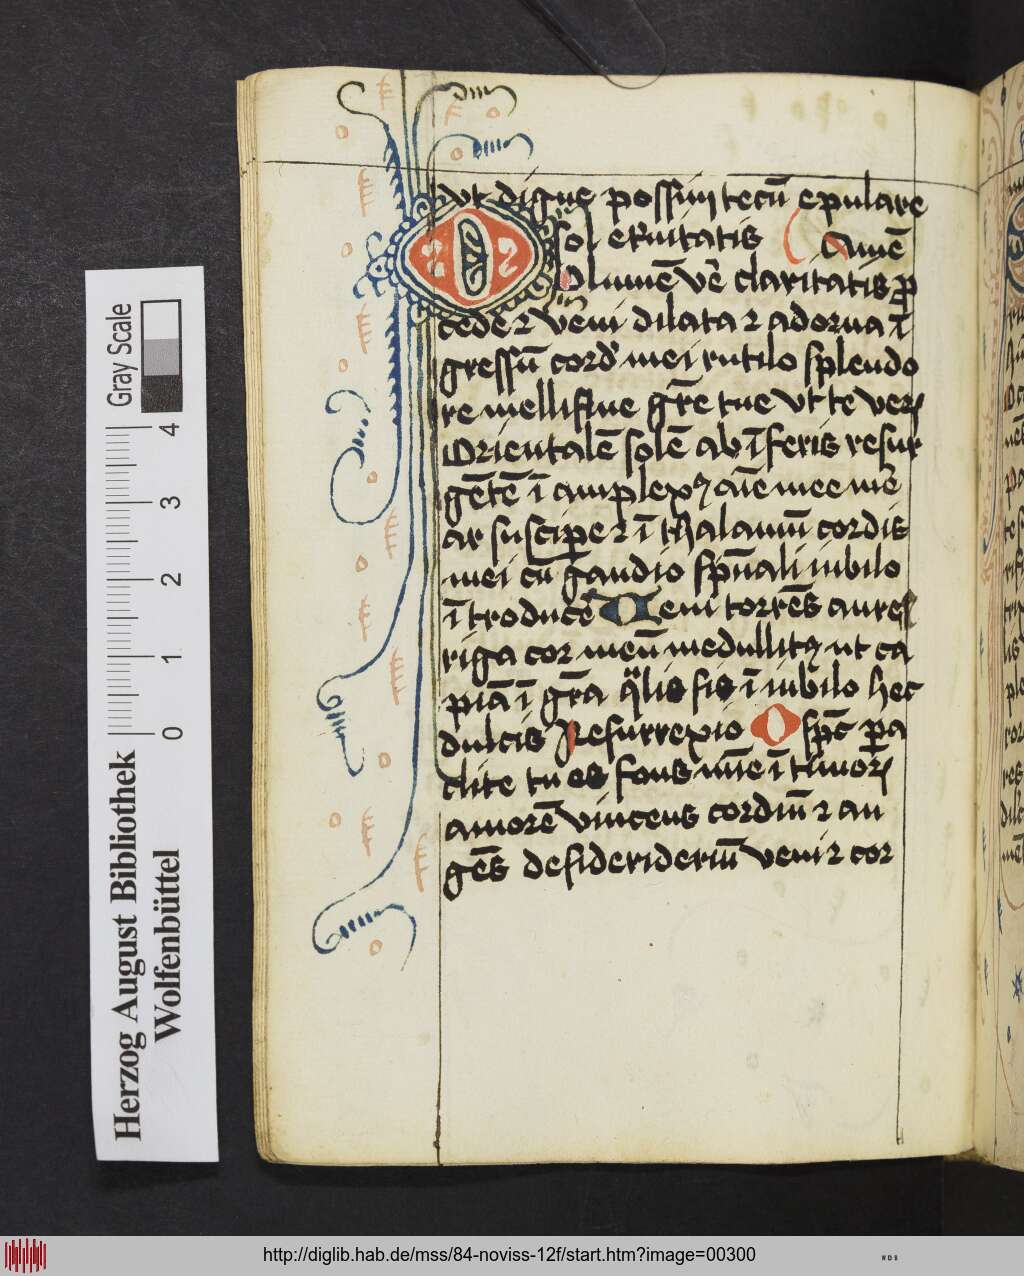 vt digne possim tecū epulare
sol et̄nitatis Amē
O lumē v̄e claritatis ꝓ
cede ⁊ veni dilata ⁊ adorna ī
gressū cord' mei rutilo splendo
re melliflue gr̄e tue vt te veꝝ
Orientalē solē ab īferis resur
gētē ī amplexꝫ aīe mee me
ar suscipe ⁊ ī thalamū cordis
mei cū gaudio spūali iubilo
ītroducē Veni torrēs aure
riga cor meū medullitꝰ ut ca
piā ī gr̄a qͣlis sis ī iubilo hec
dulcis Resurrexio O spc̄ pa
clite tu es fons mīe ī timoꝝ
amorē vincens cordiū ⁊ an
gēs desiderideriū veni ⁊ cor
Gray Scale
0 1 2 3 4
Herzog August Bibliothek
Wolfenbüttel
http://diglib.hab.de/mss/84-noviss-12f/start.htm?image=00300